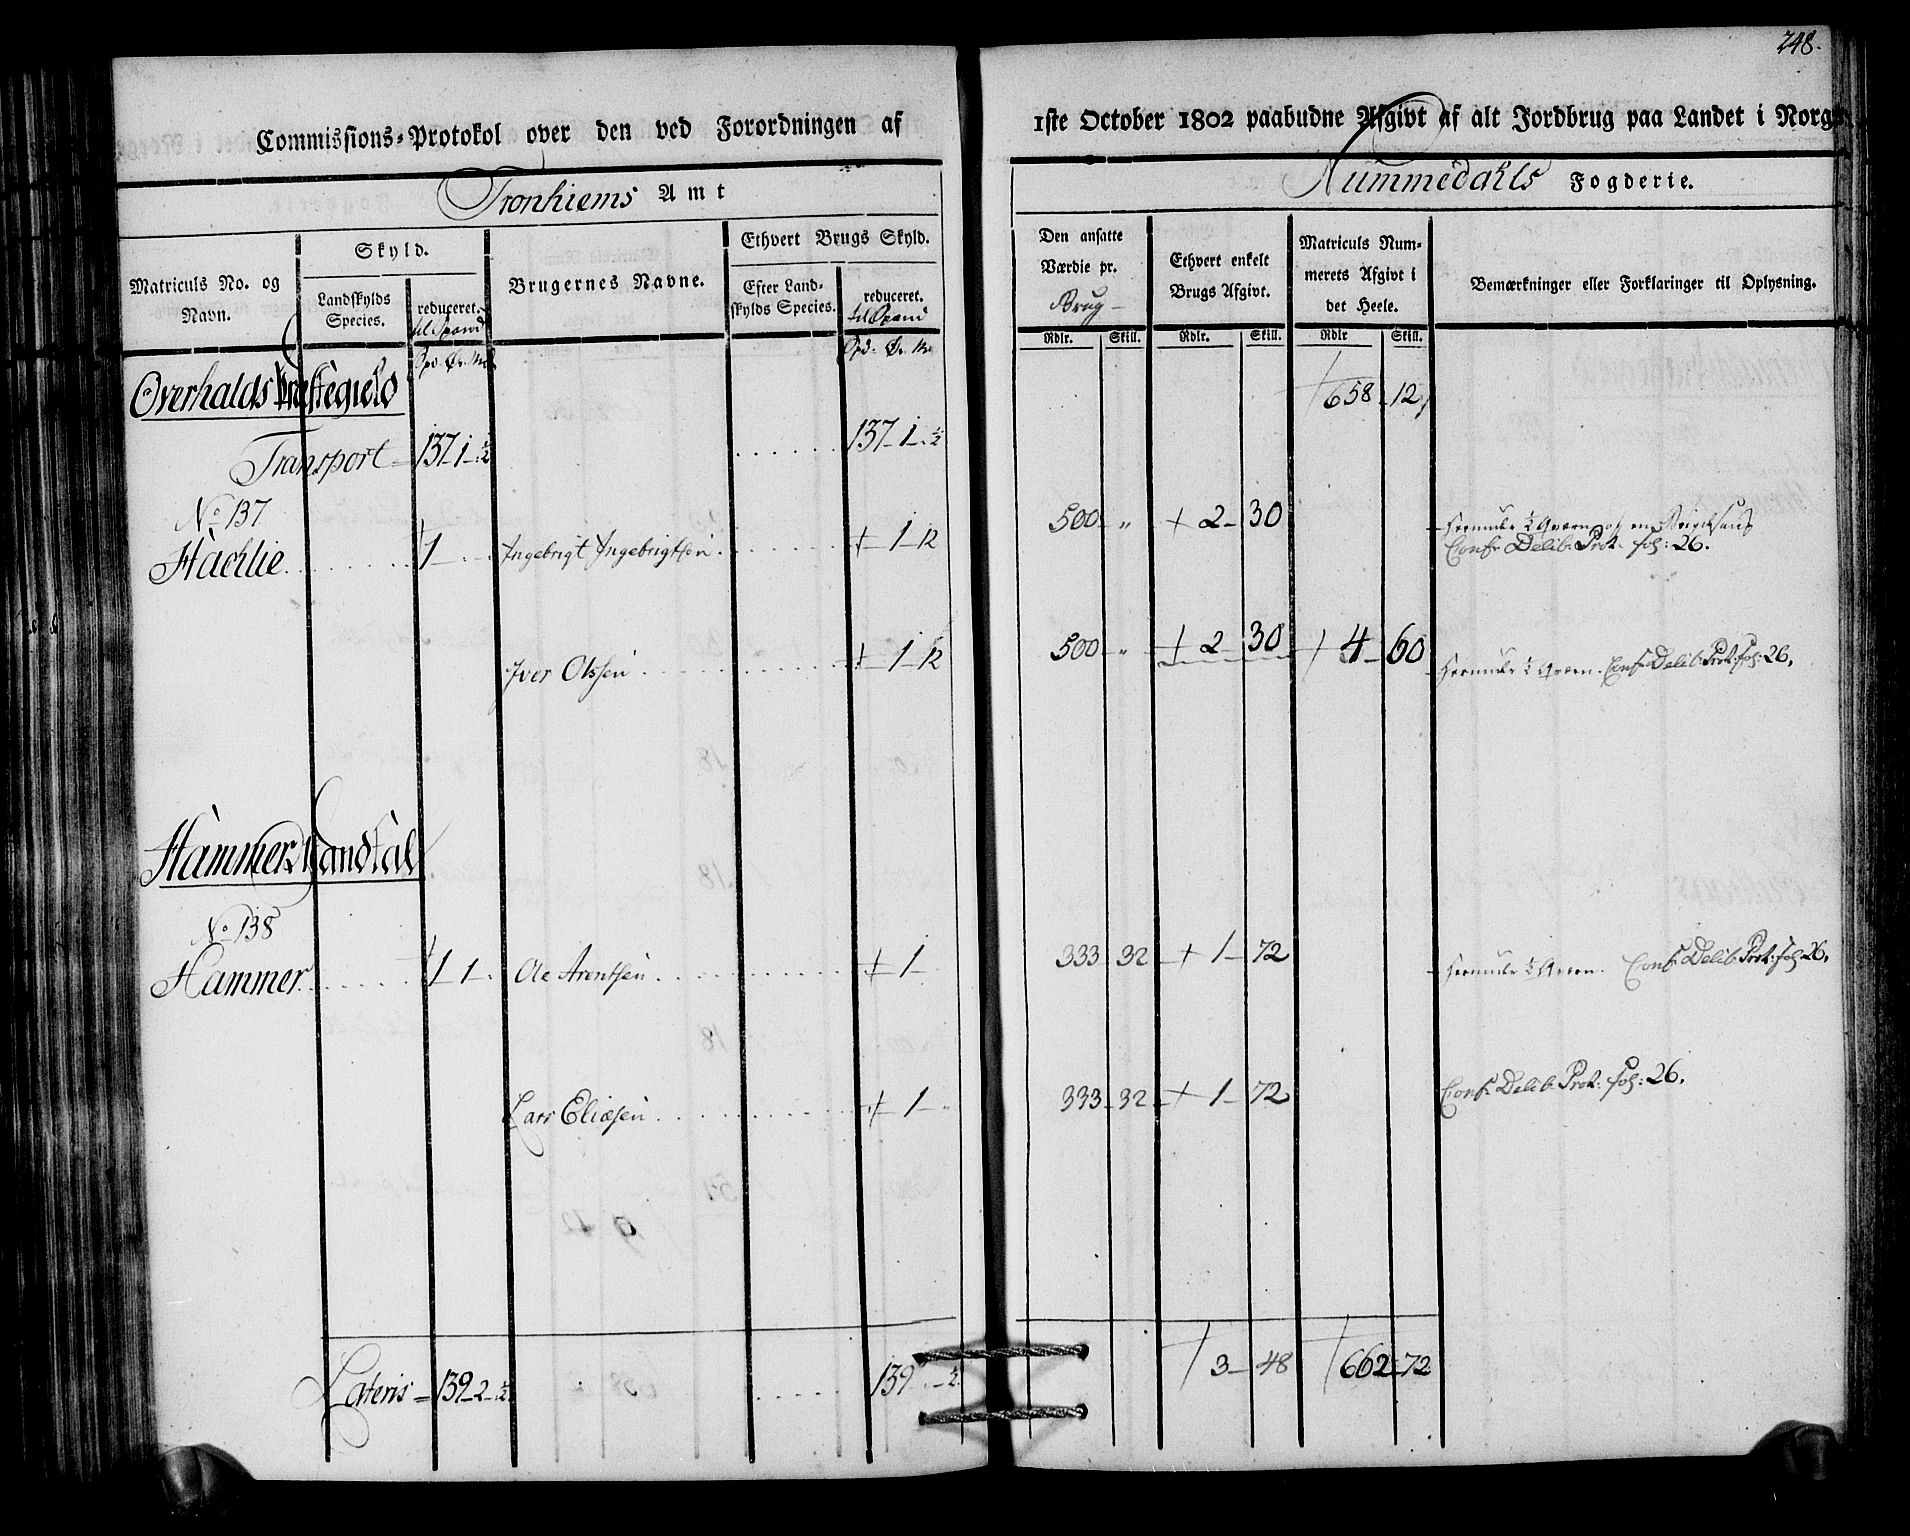 248.
Commissions-Protokol over den ved Forordningen af 1ste October 1802 paabudne Afgivt af alt Jordbrug paa Landet i Norge
Tronhiems Amt
Nummedahls Fogderie.
Matriculs No. og Navn.
Skyld.
Landskylds Species.
reduceret. til Spand
Brugernes Navne.
Ethvert Brugs Skyld.
Efter Landskylds Species.
reduceret. til Spand
Den ansatte Værdie pr. Brug
Ethvert enkelt Brugs Afgivt.
Matriculs Nummerets Afgivt i det Heele.
Bemærkninger eller Forklaringer til Oplysning.
Rdlr. Skill. Rdlr. Skill. Rdlr Skill.
Spd. Ør. Mk
Spd. Ør. Mk
Overhalds Præstegield
658 12
Transport 137 1 ½ 137 1 ½
No 137
Hachlie 1 Ingebrigt Ingebrigtsen 1 12 500 " 2 30
Conf. Delib. Prot. fol: 26.
Iver Olssen 1 12 500 " 2 30 4 60 Conf. Delib. Prot. fol: 26.
Hammer
No 138
Hammer 1 1 Ole Arentsen 1 333 32 1 72 Conf. Delib. Prot: fol: 26.
Lars Eliæsen 1 333 32 1 72 Conf. Delib. Prot: fol: 26.
3 48 662 72
Lateris = 139 2 ½ 139 ½